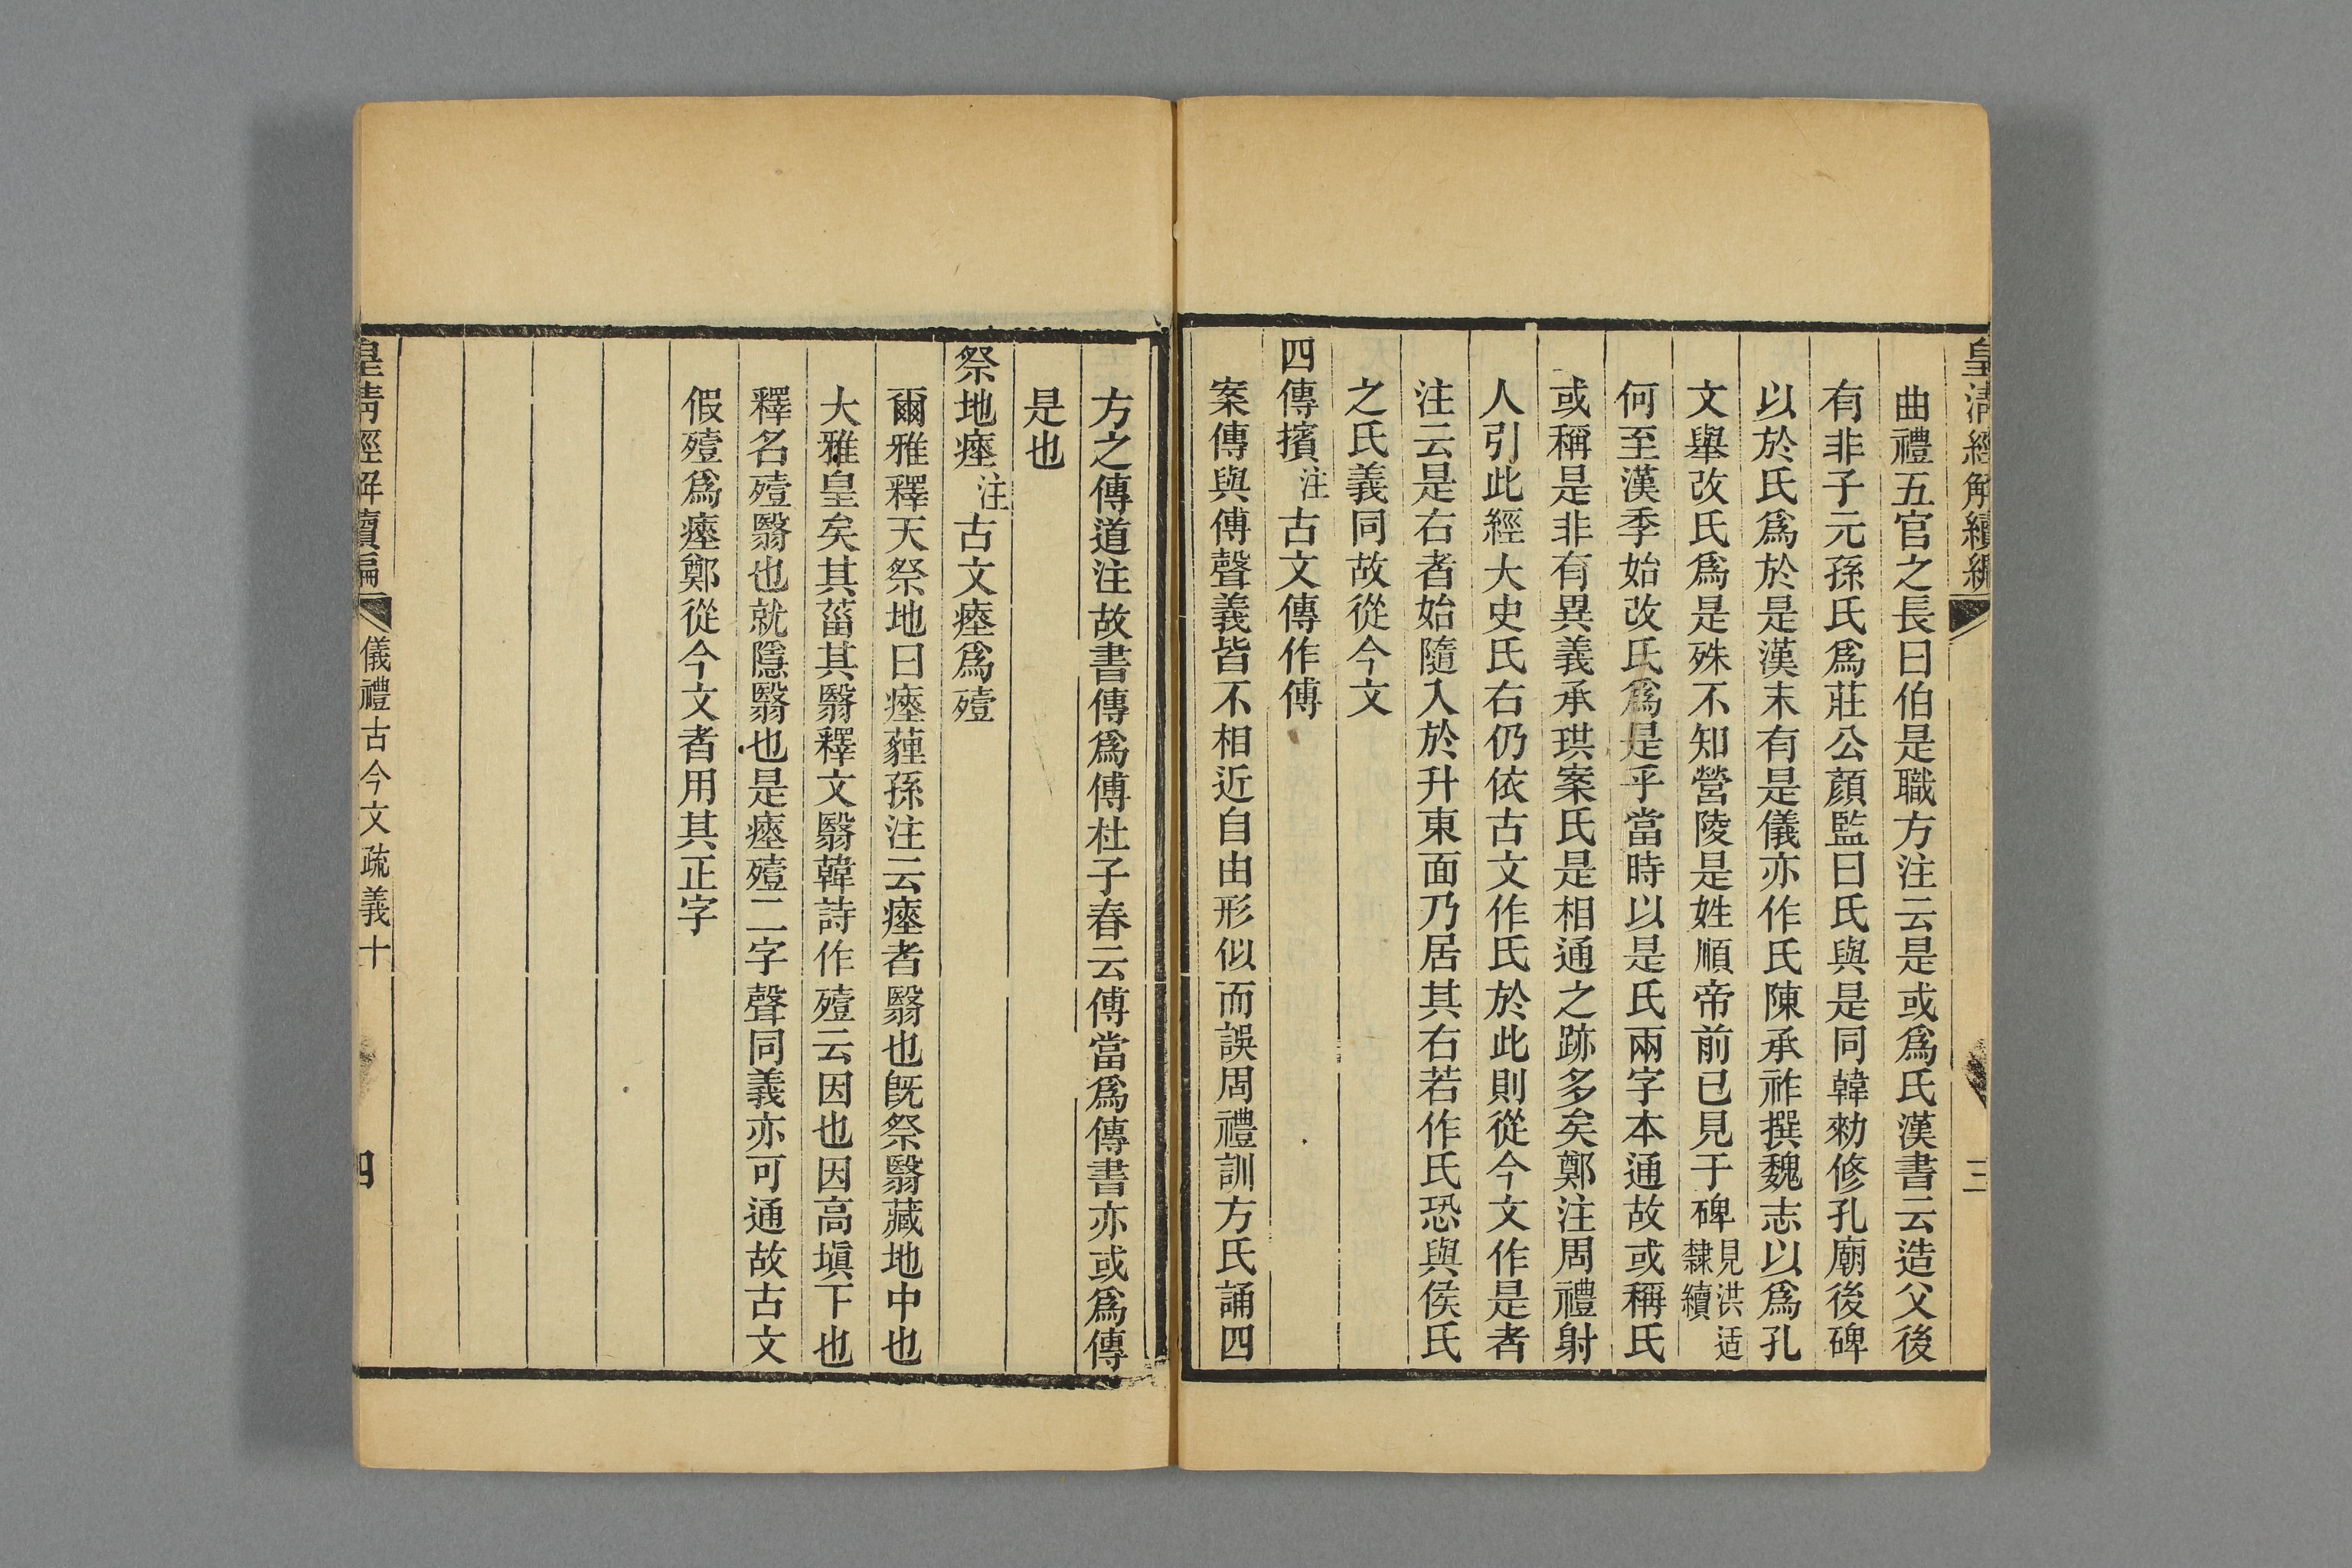 皇清經解續編
三
曲禮五官之長曰伯是職方注云是或爲氏漢書云造父後
有非子元孫氏爲莊公顏監曰氏與是同韓勑修孔廟後碑
以於氏爲於是漢末有是儀亦作氏陳承祚撰魏志以爲孔
文舉改氏爲是殊不知營陵是姓順帝前已見于碑見洪适隸續
何至漢季始改氏爲是乎當時以是氏兩字本通故或稱氏
或稱是非有異義承珙案氏是相通之跡多矣鄭注周禮射
人引此經大史氏右仍依古文作氏於此則從今文作是者
注云是右者始隨入於升東面乃居其右若作氏恐與侯氏
之氏義同故從今文
四傳擯注古文傳作傅
案傳與傅聲義皆不相近自由形似而誤周禮訓方氏誦四
方之傳道注故書傳爲傅杜子春云傅當爲傳書亦或爲傳
是也
祭地瘞注古文瘞爲殪
爾雅釋天祭地曰瘞薶孫注云瘞者翳也旣祭翳藏地中也
大雅皇矣其菑其翳釋文翳韓詩作殪云因也因高塡下也
釋名殪翳也就隱翳也是瘞殪二字聲同義亦可通故古文
假殪爲瘞鄭從今文者用其正字
皇清經解續編
儀禮古今文疏義十
四